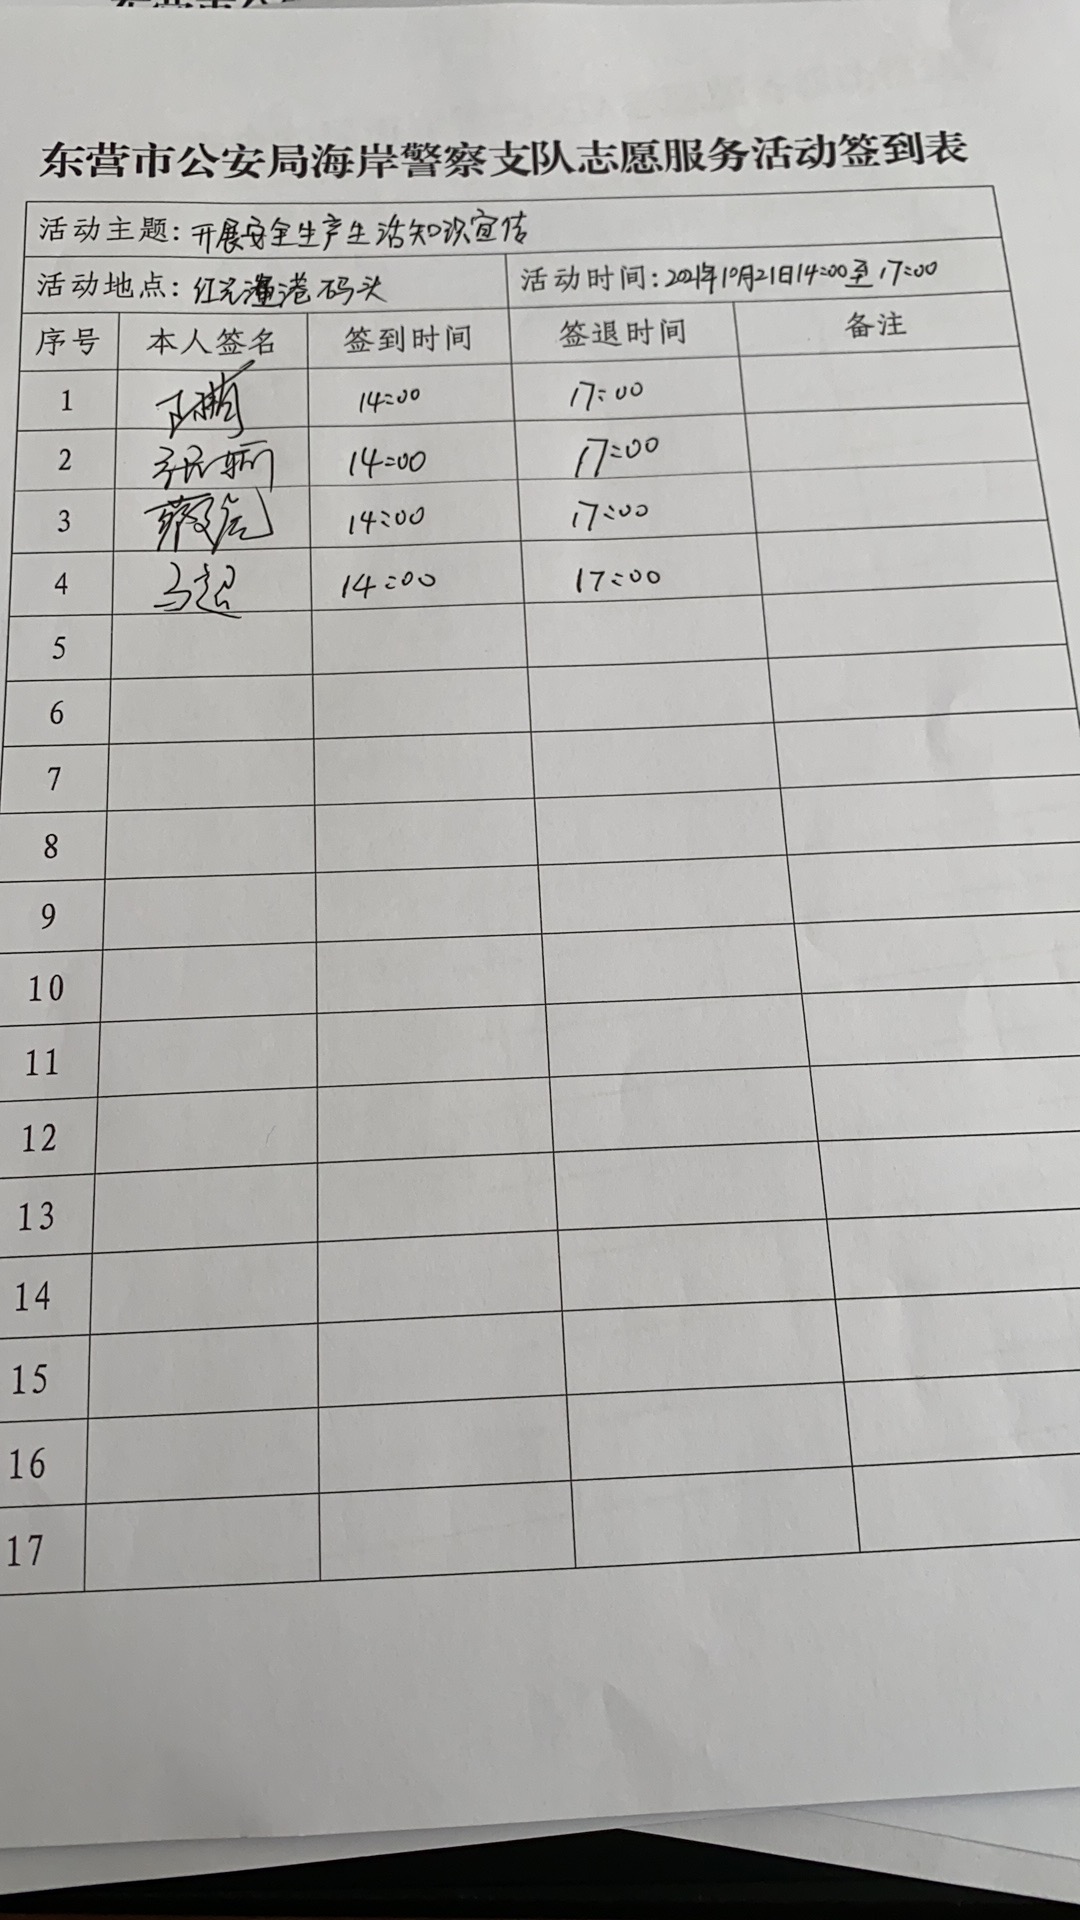 东营市公安局海岸警察支队志愿服务活动签到表
活动主题：开展安全生产生活知识宣传
活动地点：红光渔港码头 活动时间：2021年10月21日14:00至17:00
序号 本人签名 签到时间 签退时间 备注
1 14:00 17:00
2 14:00 17:00
3 14:00 17:00
4 马超 14:00 17:00
5
6
7
8
9
10
11
12
13
14
15
16
17